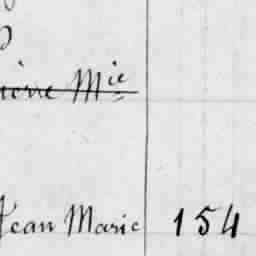 Mie
Jean Marie 154